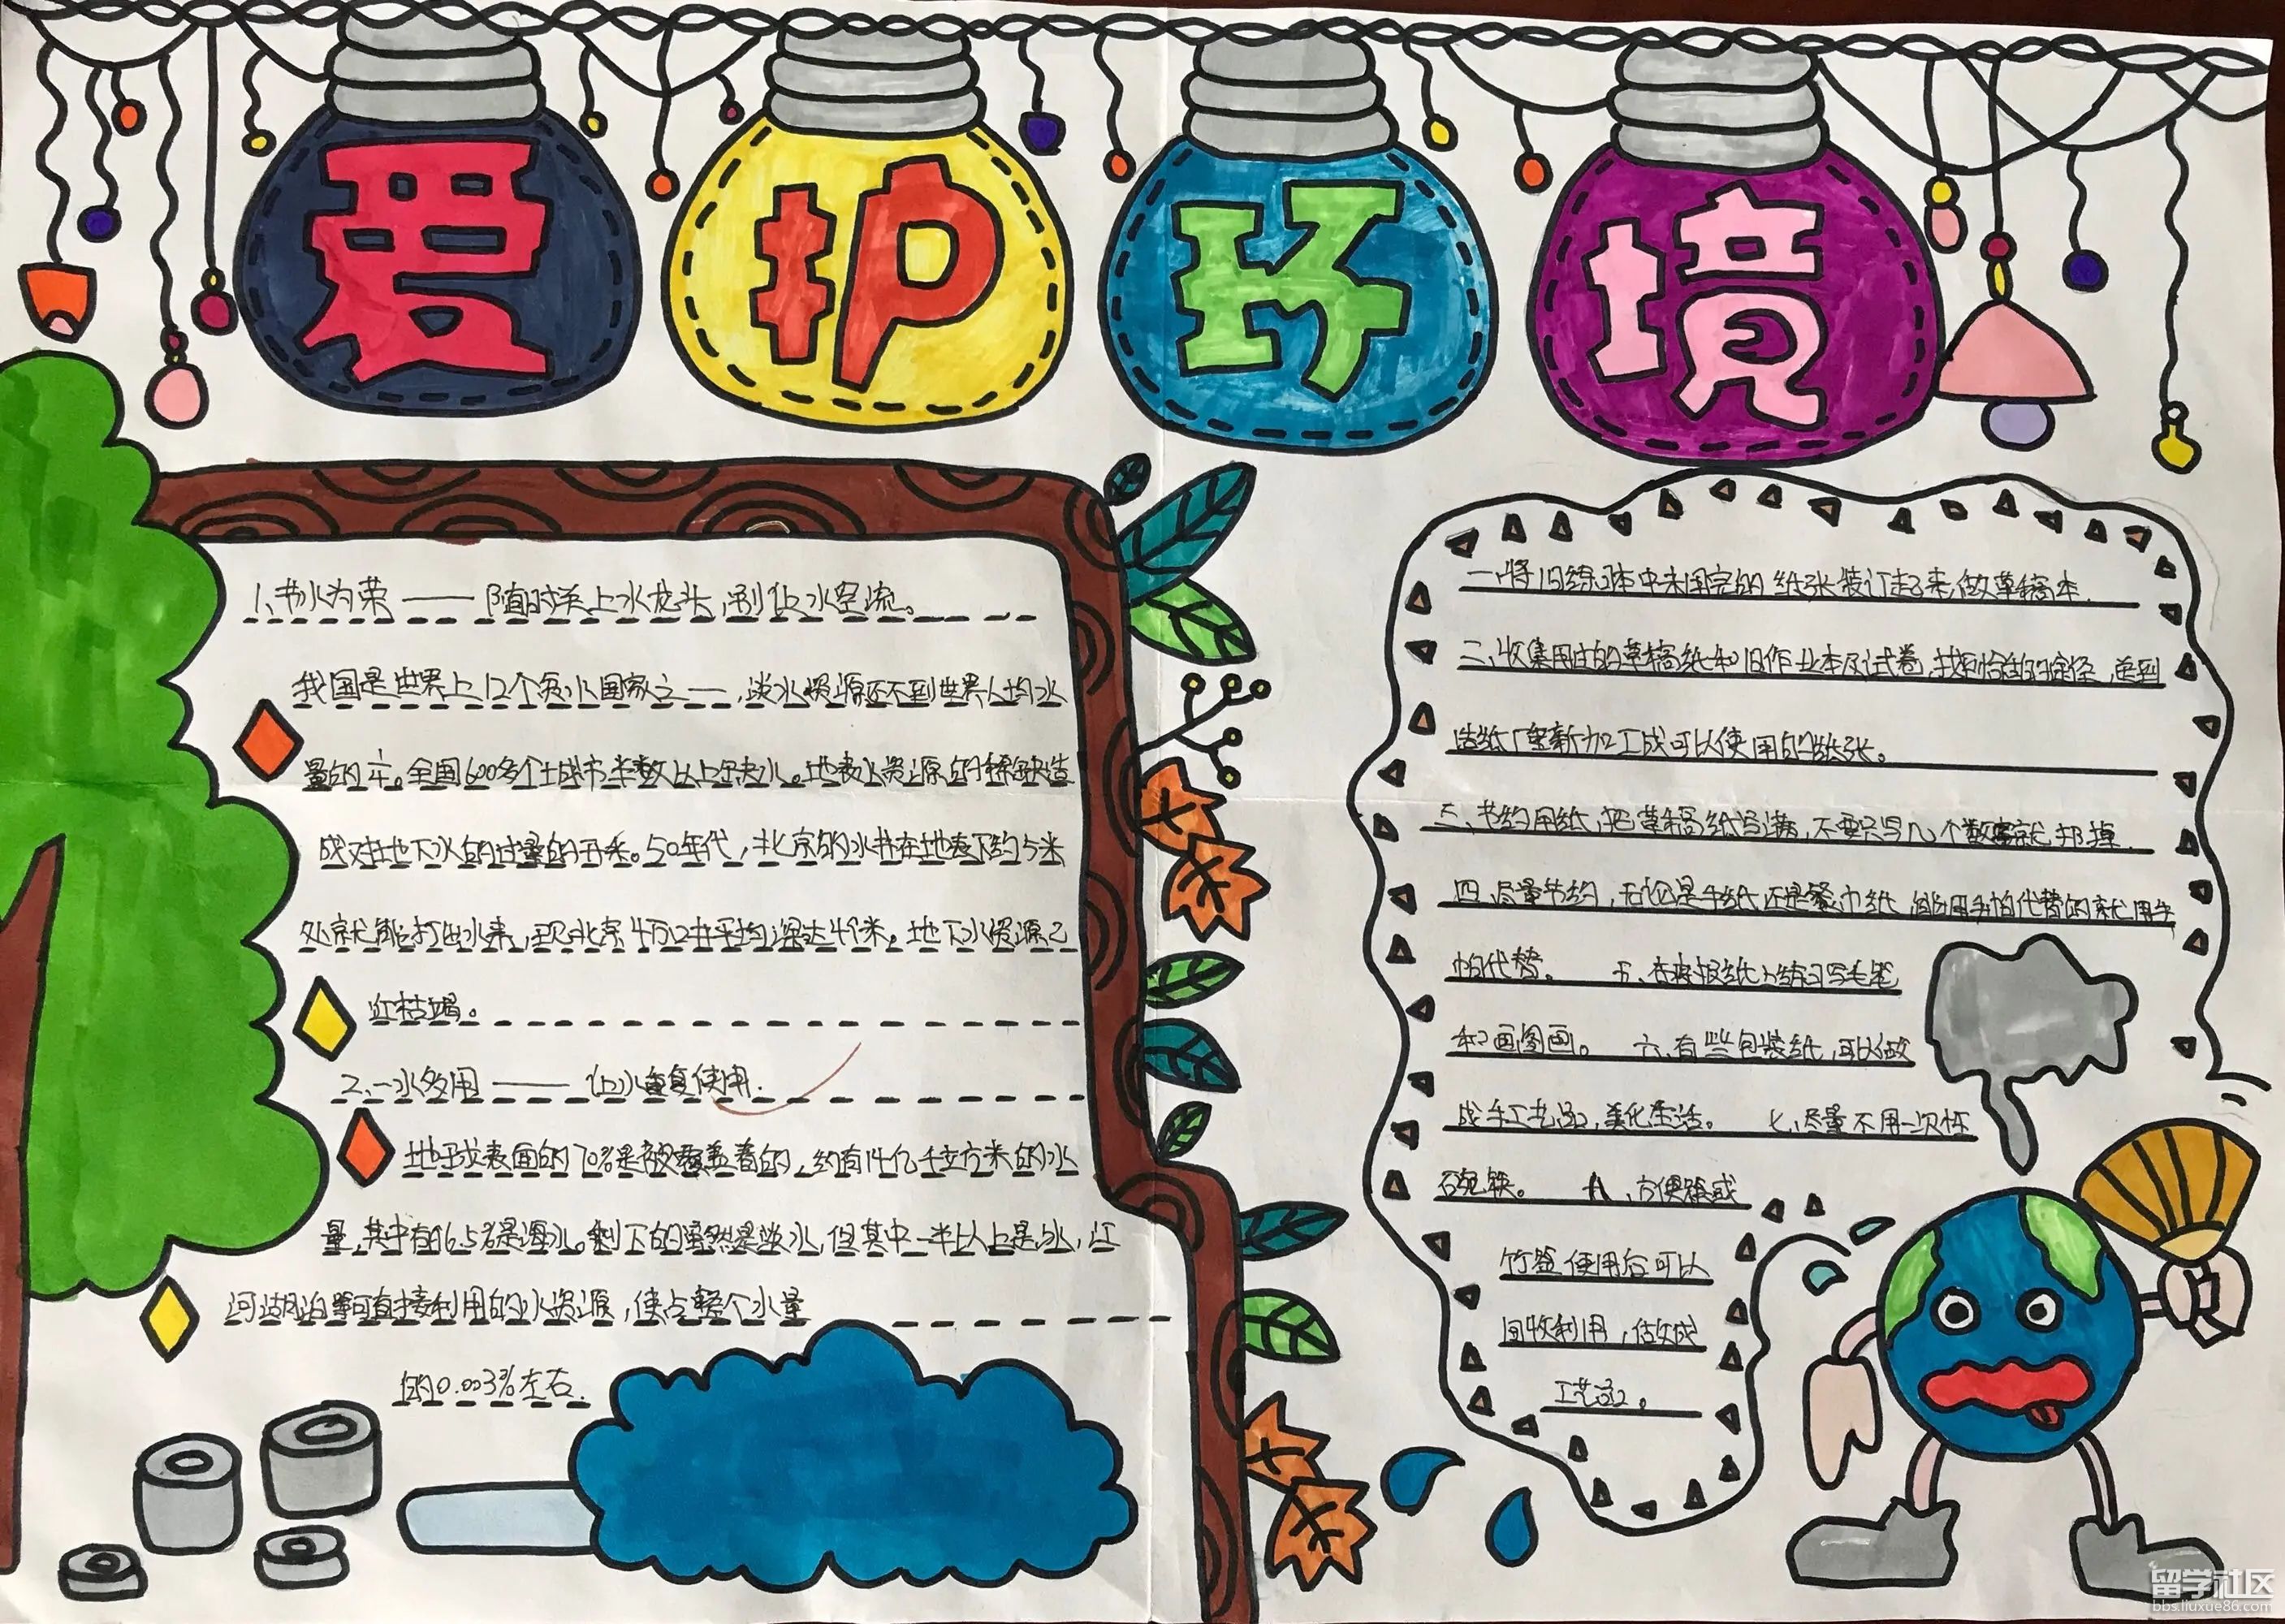 爱护环境
1、节水为荣——随时关上水龙头,别让水空流。
我国是世界上12个贫水国家之一,淡水资源还不到世界人均水
量的 。全国600多个城市半数以上缺水。地表水资源的稀缺造
成对地下水的过量的开采。50年代,北京的水井在地表下约5米
处就能打出水来,现北京4万口井平均深达49米。地下水资源已
近枯竭。
2、一水多用——让水重复使用.
地球表面的70%是被覆盖着的,约有14亿千立方米的水
量,其中有96.5%是海水。剩下的虽然是淡水,但其中一半以上是冰,江
河湖泊等可直接利用的水资源,使占整个水量
的0.003%左右.
一、将旧练习本中未用完的纸张装订起来,做草稿本.
二、收集用过的草稿纸和旧作业本及试卷,找恰当的途径,送到
造纸厂重新加工成可以使用的纸张。
三、节约用纸,把草稿纸写满,不要只写几个数字就扔掉.
四、尽量节约,无论是手纸还是餐巾纸 能用手帕代替的就用手
帕代替。 五、在废报纸上练习写毛笔
和画图画。 六、有些包装纸,可以做
成手工艺品,美化生活。 七、尽量不用一次性
碗筷。 八、方便筷或
竹签使用后可以
回收利用,做成
工艺品。
留学社区
bbs.liuxue86.com